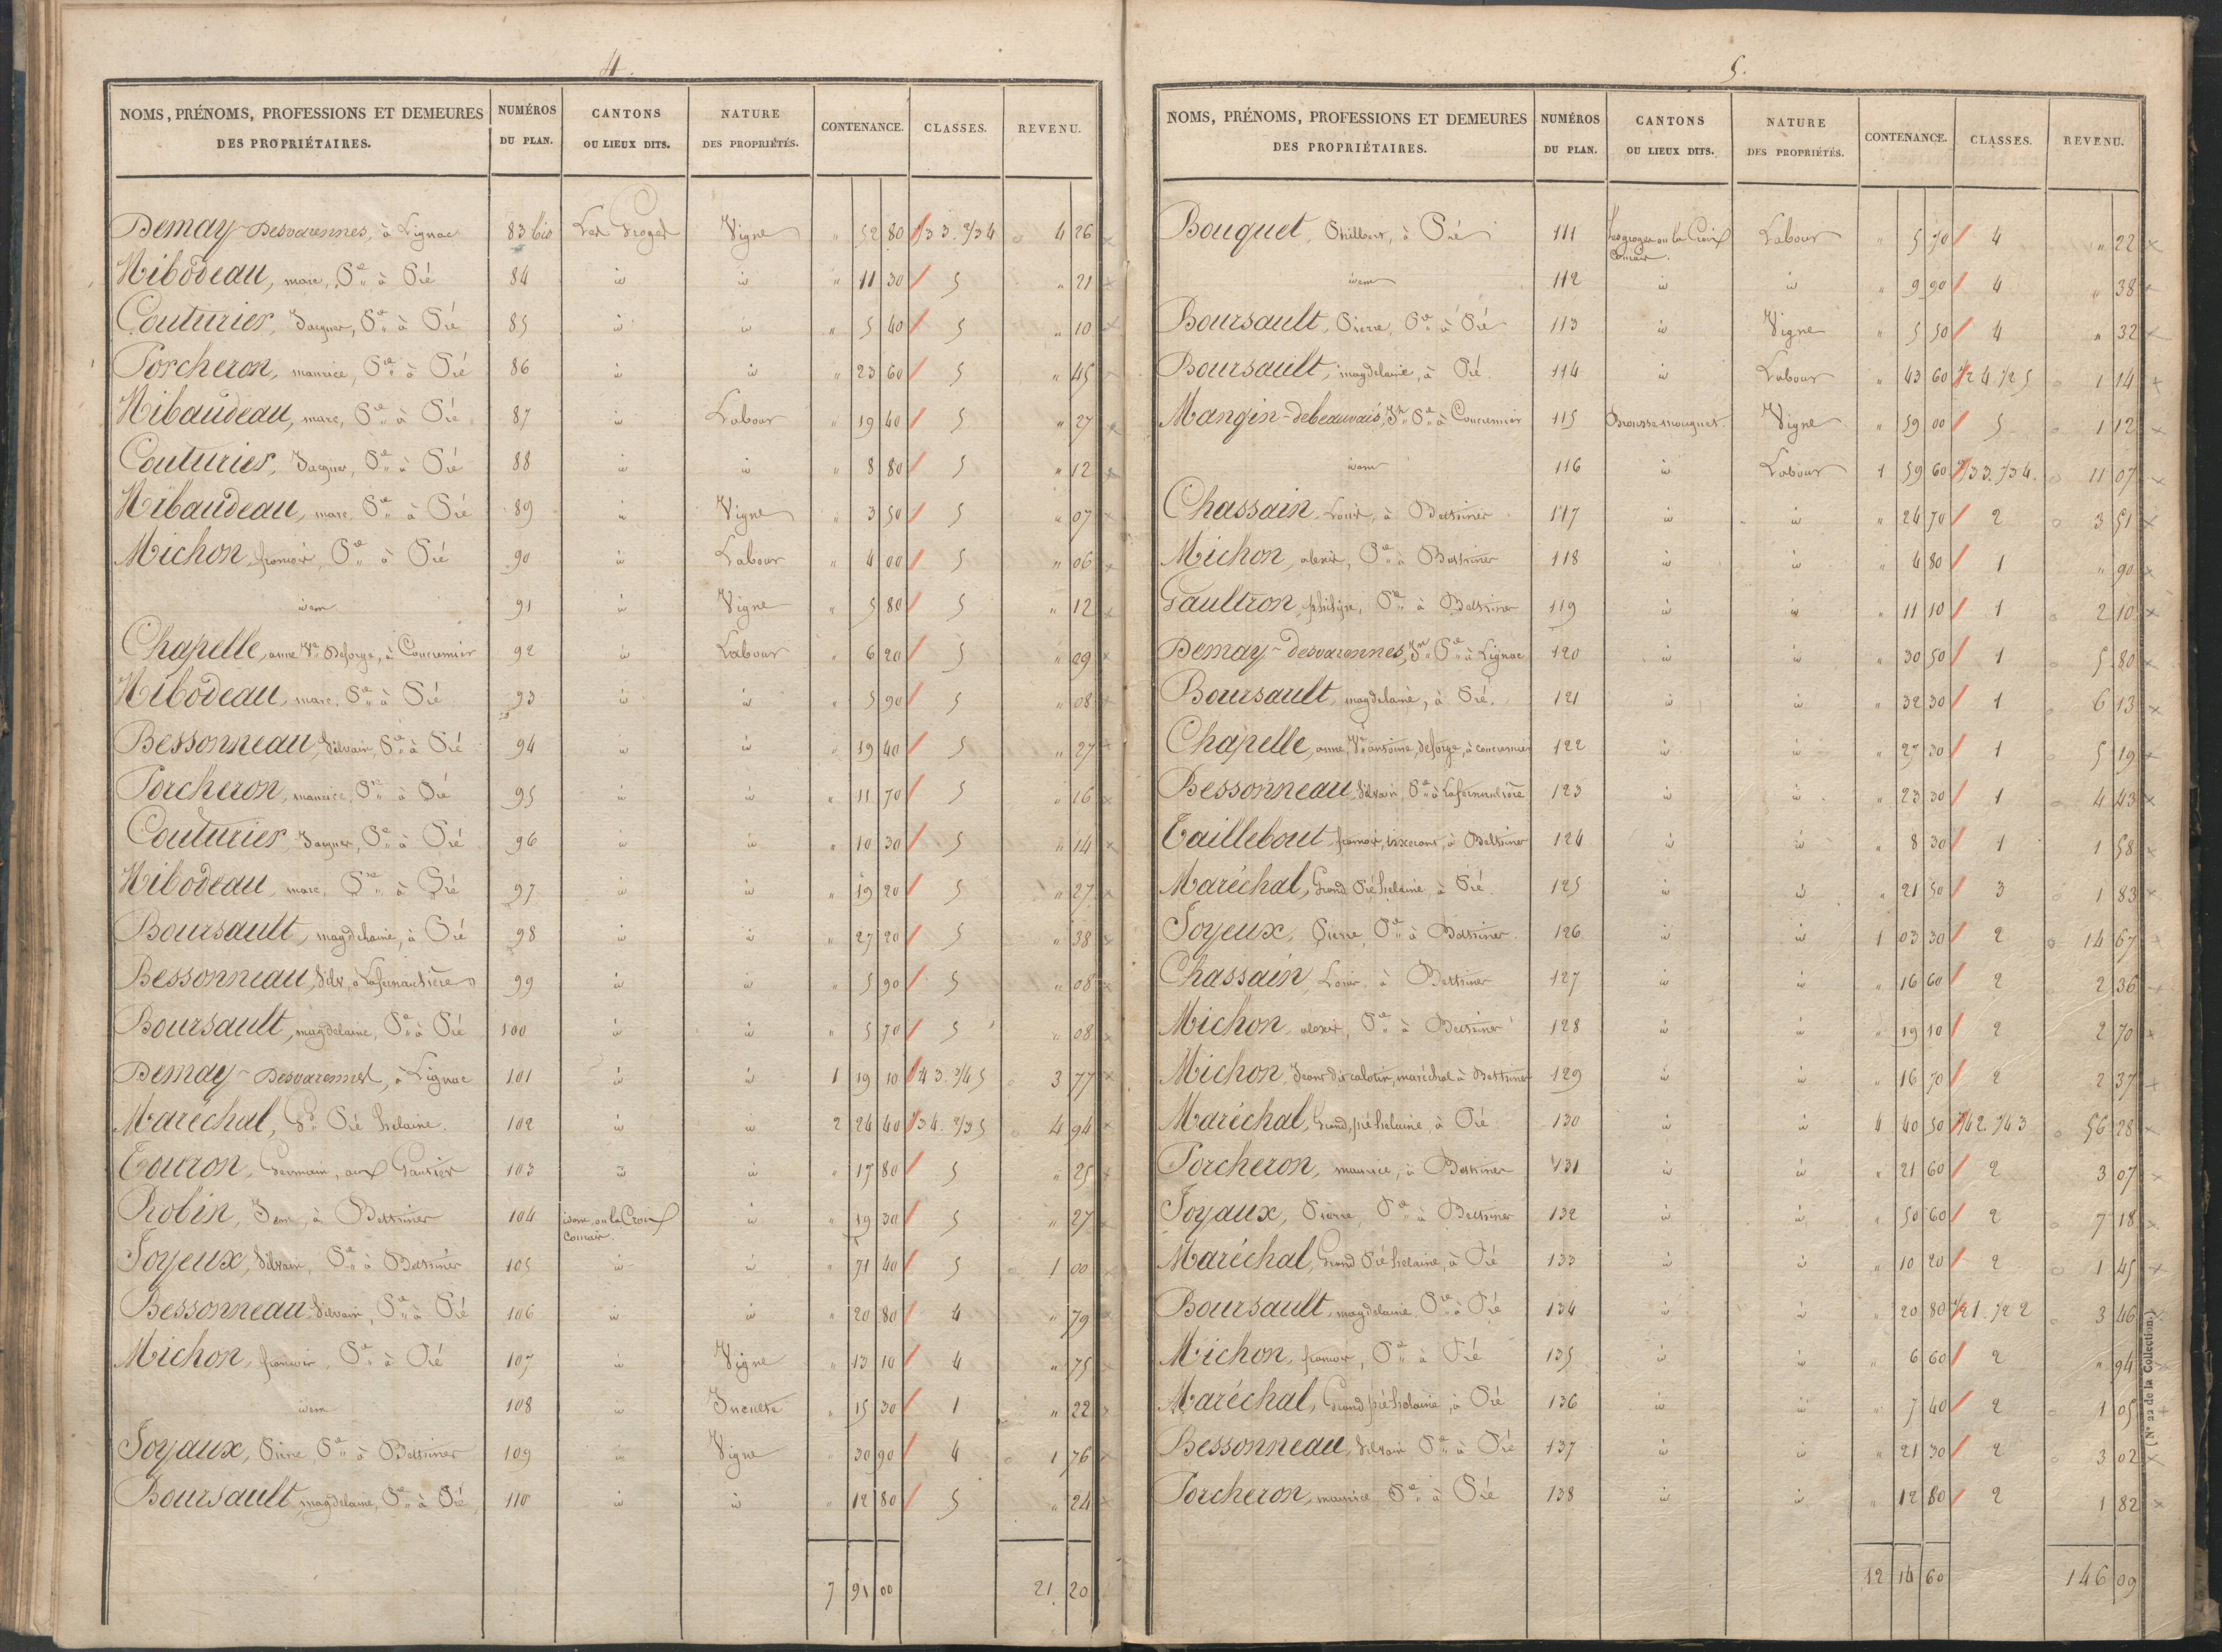 4.
NOMS, PRÉNOMS, PROFESSIONS ET DEMEURES DES PROPRIÉTAIRES. NUMÉROS DU PLAN. CANTONS OU LIEUX DITS. NATURE DES PROPRIÉTÉS. CONTENANCE. CLASSES. REVENU.
Demay-Desvarennes, à Lignac 83 bis Les Vigne " 52 80 1/3 3. 2/3 4 4 26
Nibodeau, marc, Pre à Pié 84 id id " 11 30 5 " 21
Couturier, Jacques, Pre à Pié 85 id id " 5 40 5 " 10
Porcheron, maurice, Pre à Pié 86 id id " 23 60 5 " 45
Nibaudeau, marc, Pre à Pié 87 id Labour " 19 40 5 " 27
Couturier, Jacques, Pre à Pié 88 id id " 8 80 5 " 12
Nibaudeau, marc, Pre à Pié 89 id Vigne " 3 50 5 " 07
Michon, francois, Pre à Pié 90 id Labour " 4 00 5 " 06
idem 91 id Vigne " 5 80 5 " 12
Chapelle, anne Ve Deforge, à Concremier 92 id Labour " 6 20 5 " 09
Nibodeau, marc, Pre à Pié 93 id id " 5 90 5 " 08
Bessonneau, Silvain, Pre à Pié 94 id id " 19 40 5 " 27
Porcheron, maurice, Pre à Pié 95 id id " 11 70 5 " 16
Couturier, Jacques, Pre à Pié 96 id id " 10 30 5 " 14
Nibodeau, marc, Pre à Pié 97 id id " 19 20 5 " 27
Boursault, magdelaine, à Pié 98 id id " 27 20 5 " 38
Bessonneau, Silv. à 99 id id " 5 90 5 " 08
Boursault, magdelaine, Pre à Pié 100 id id " 5 70 5 " 08
Demay-Desvarennes, à Lignac 101 id id 1 19 10 1/4 3. 3/4 5 3 77
Maréchal, Gd Pié helaine 102 id id 2 24 40 1/3 4. 2/3 5 4 94
Touron, Germain, aux 103 id id " 17 80 5 " 25
Robin, Jean, à 104 idem ou la Croix id " 19 30 5 " 27
Joyeux, Silvain, Pre à 105 id id " 71 40 5 1 00
Bessonneau, Silvain, Pre à Pié 106 id id " 20 80 4 " 79
Michon, francois, Pre à Pié 107 id Vigne " 13 10 4 " 75
idem 108 id Inculte " 15 30 1 " 22
Joyaux, Pierre, Pre à 109 id Vigne " 30 90 4 1 76
Boursault, magdelaine, Pre à Pié 110 id id " 12 80 5 " 24
7 91 00 21 20
5.
NOMS, PRÉNOMS, PROFESSIONS ET DEMEURES DES PROPRIÉTAIRES. NUMÉROS DU PLAN. CANTONS OU LIEUX DITS. NATURE DES PROPRIÉTÉS. CONTENANCE. CLASSES. REVENU.
Bouquet, à Pié 111 ou la Croix Labour " 5 70 4 " 22
idem 112 id id " 9 90 4 " 38
Boursault, Pierre, Pre à Pié 113 id Vigne " 5 50 4 " 32
Boursault, magdelaine, à Pié 114 id Labour " 43 60 1/2 4. 1/2 5 1 14
Mangin-debeauvais, Pre à Concremier 115 Vigne " 59 00 5 1 12
idem 116 id Labour 1 59 60 2/3 3. 1/3 4. 11 07
Chassain, Louis, à 117 id id " 24 70 2 3 51
Michon, alexis, Pre à 118 id id " 4 80 1 " 90
Gaultron, philipe, Pre à 119 id id " 11 10 1 2 10
Demay-desvarennes, Pre à Lignac 120 id id " 30 50 1 5 80
Boursault, magdelaine, à Pié. 121 id id " 32 30 1 6 13
Chapelle, anne, Ve antoine, deforge, à concremier 122 id id " 27 30 1 5 19
Bessonneau, Silvain, Pre à 123 id id " 23 30 1 4 43
Taillebout, francois, tixerant, à 124 id id " 8 30 1 1 58
Maréchal, Grand Pié helaine, à Pié. 125 id id " 21 50 3 1 83
Joyeux, Pierre, Pre à 126 id id 1 03 30 2 14 67
Chassain, Louis, à 127 id id " 16 60 2 2 36
Michon, alexis, Pre à 128 id id " 19 10 2 2 70
Michon, Jean dit calotin, maréchal à 129 id id " 16 70 2 2 37
Maréchal, Grand, pié helaine, à Pié 130 id id 4 40 50 1/4 2. 3/4 3 56 28
Porcheron, maurice, à 131 id id " 21 60 2 3 07
Joyaux, Pierre, Pre à 132 id id " 50 60 2 7 18
Maréchal, Grand Pié helaine, à Pié 133 id id " 10 20 2 1 45
Boursault, magdelaine, Pre à Pié 134 id id " 20 80 1/2 1. 1/2 2 3 46
Michon, francois, Pre à Pié 135 id id " 6 60 2 " 94
Maréchal, Grand pié helaine, à Pié 136 id id " 7 40 2 1 05
Bessonneau, Silvain, Pre à Pié 137 id id " 21 30 2 3 02
Porcheron, maurice, Pre à Pié 138 id id " 12 80 2 1 82
12 14 60 146 09
(N° 22 de la Collection.)